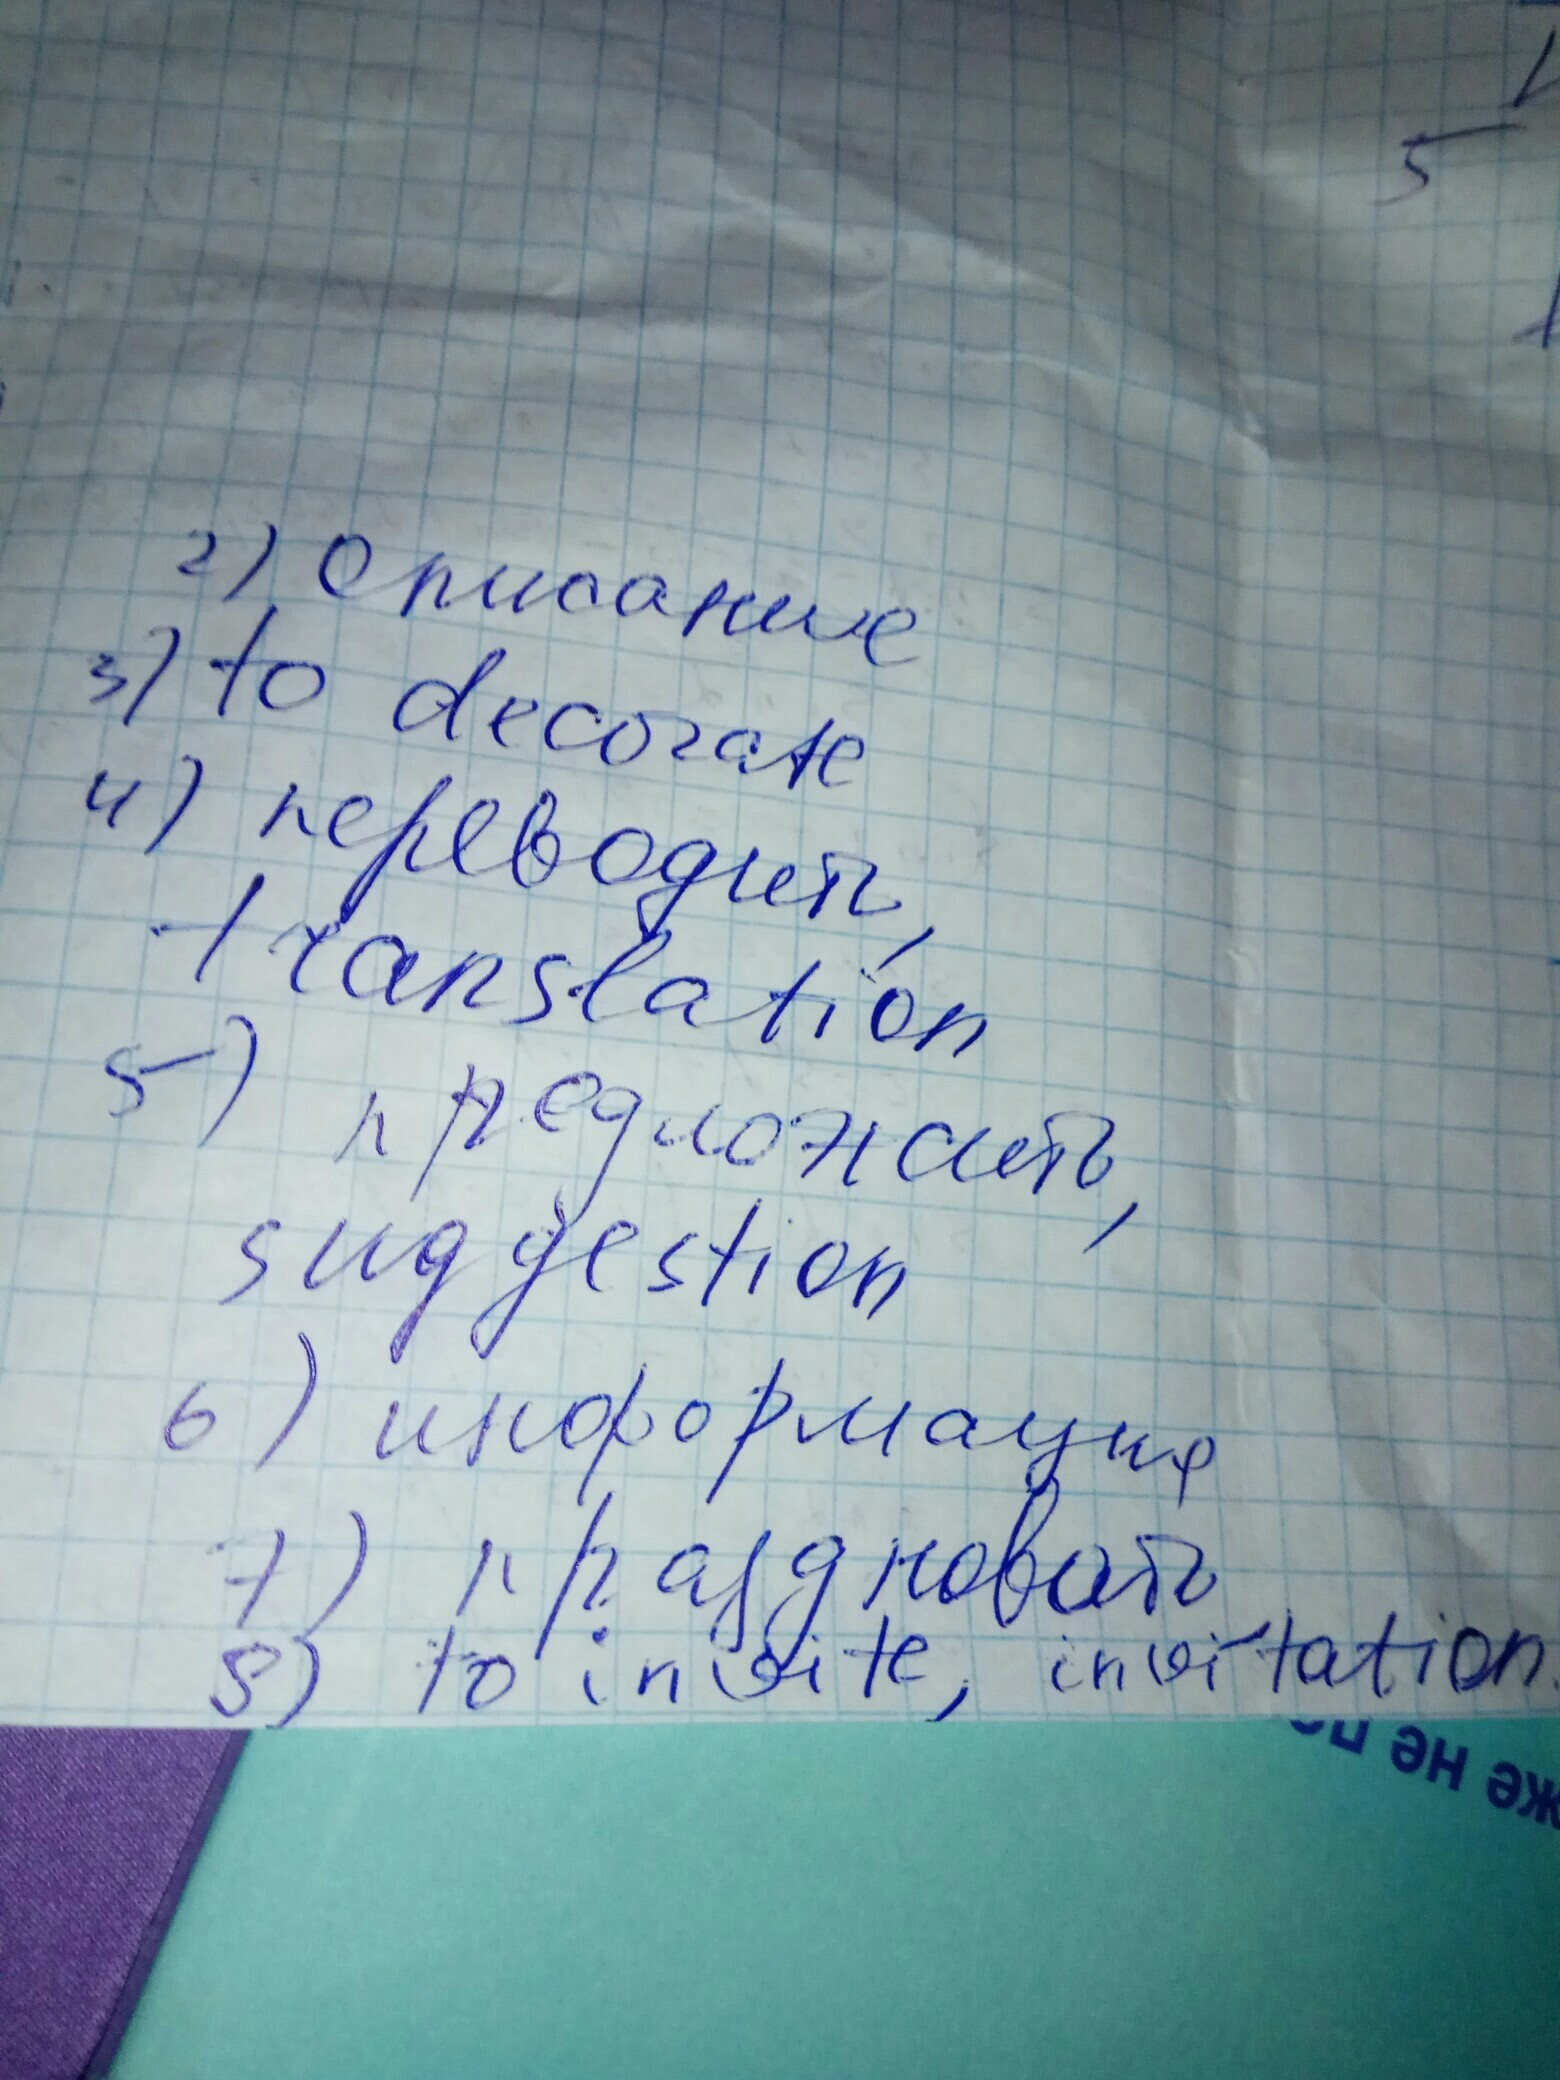 5
2) Описание
3) to decorate
4) переводить,
translation
5) предложить,
suggestion
6) информация
7) праздновать
8) to invite, invitation.
же не по